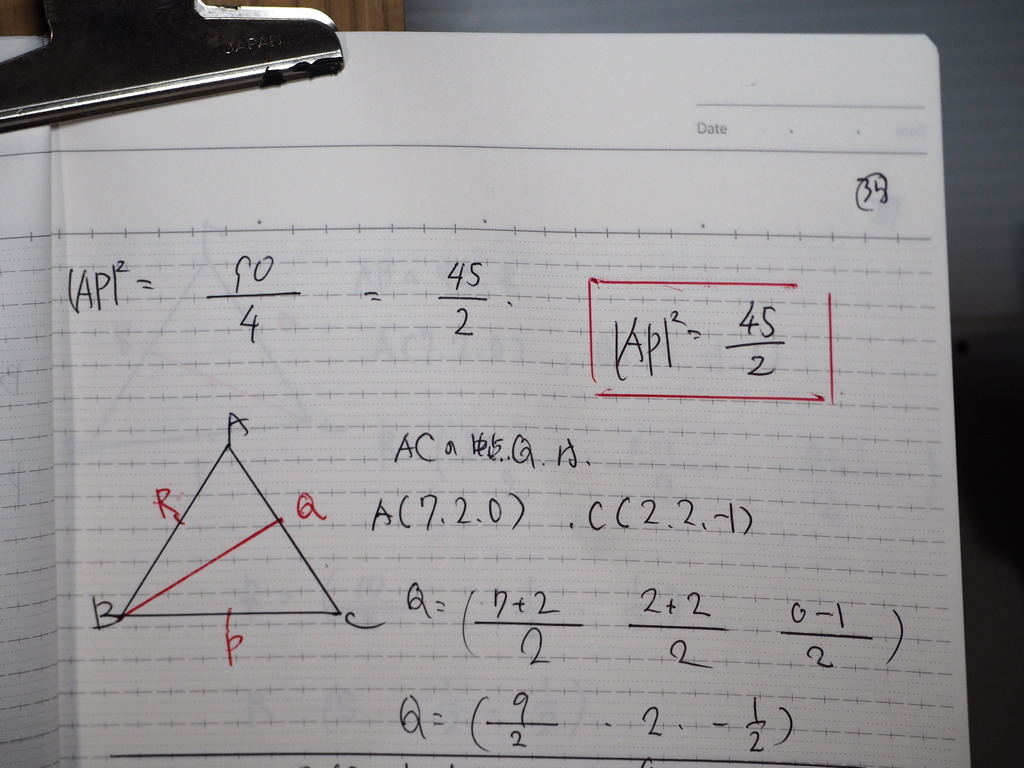 JAPAN
Date
39
|AP|² = 90/4 = 45/2.
|AP|² = 45/2
A
R
Q
B
C
P
ACの中点Qは.
A(7.2.0) . C(2.2.-1)
Q = (7+2/2 2+2/2 0-1/2)
Q = (9/2 . 2 . -1/2)